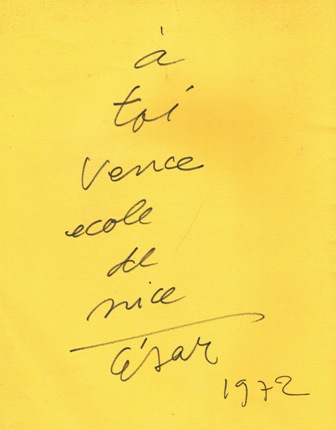 à
toi
Vence
ecole
de
nice
César
1972